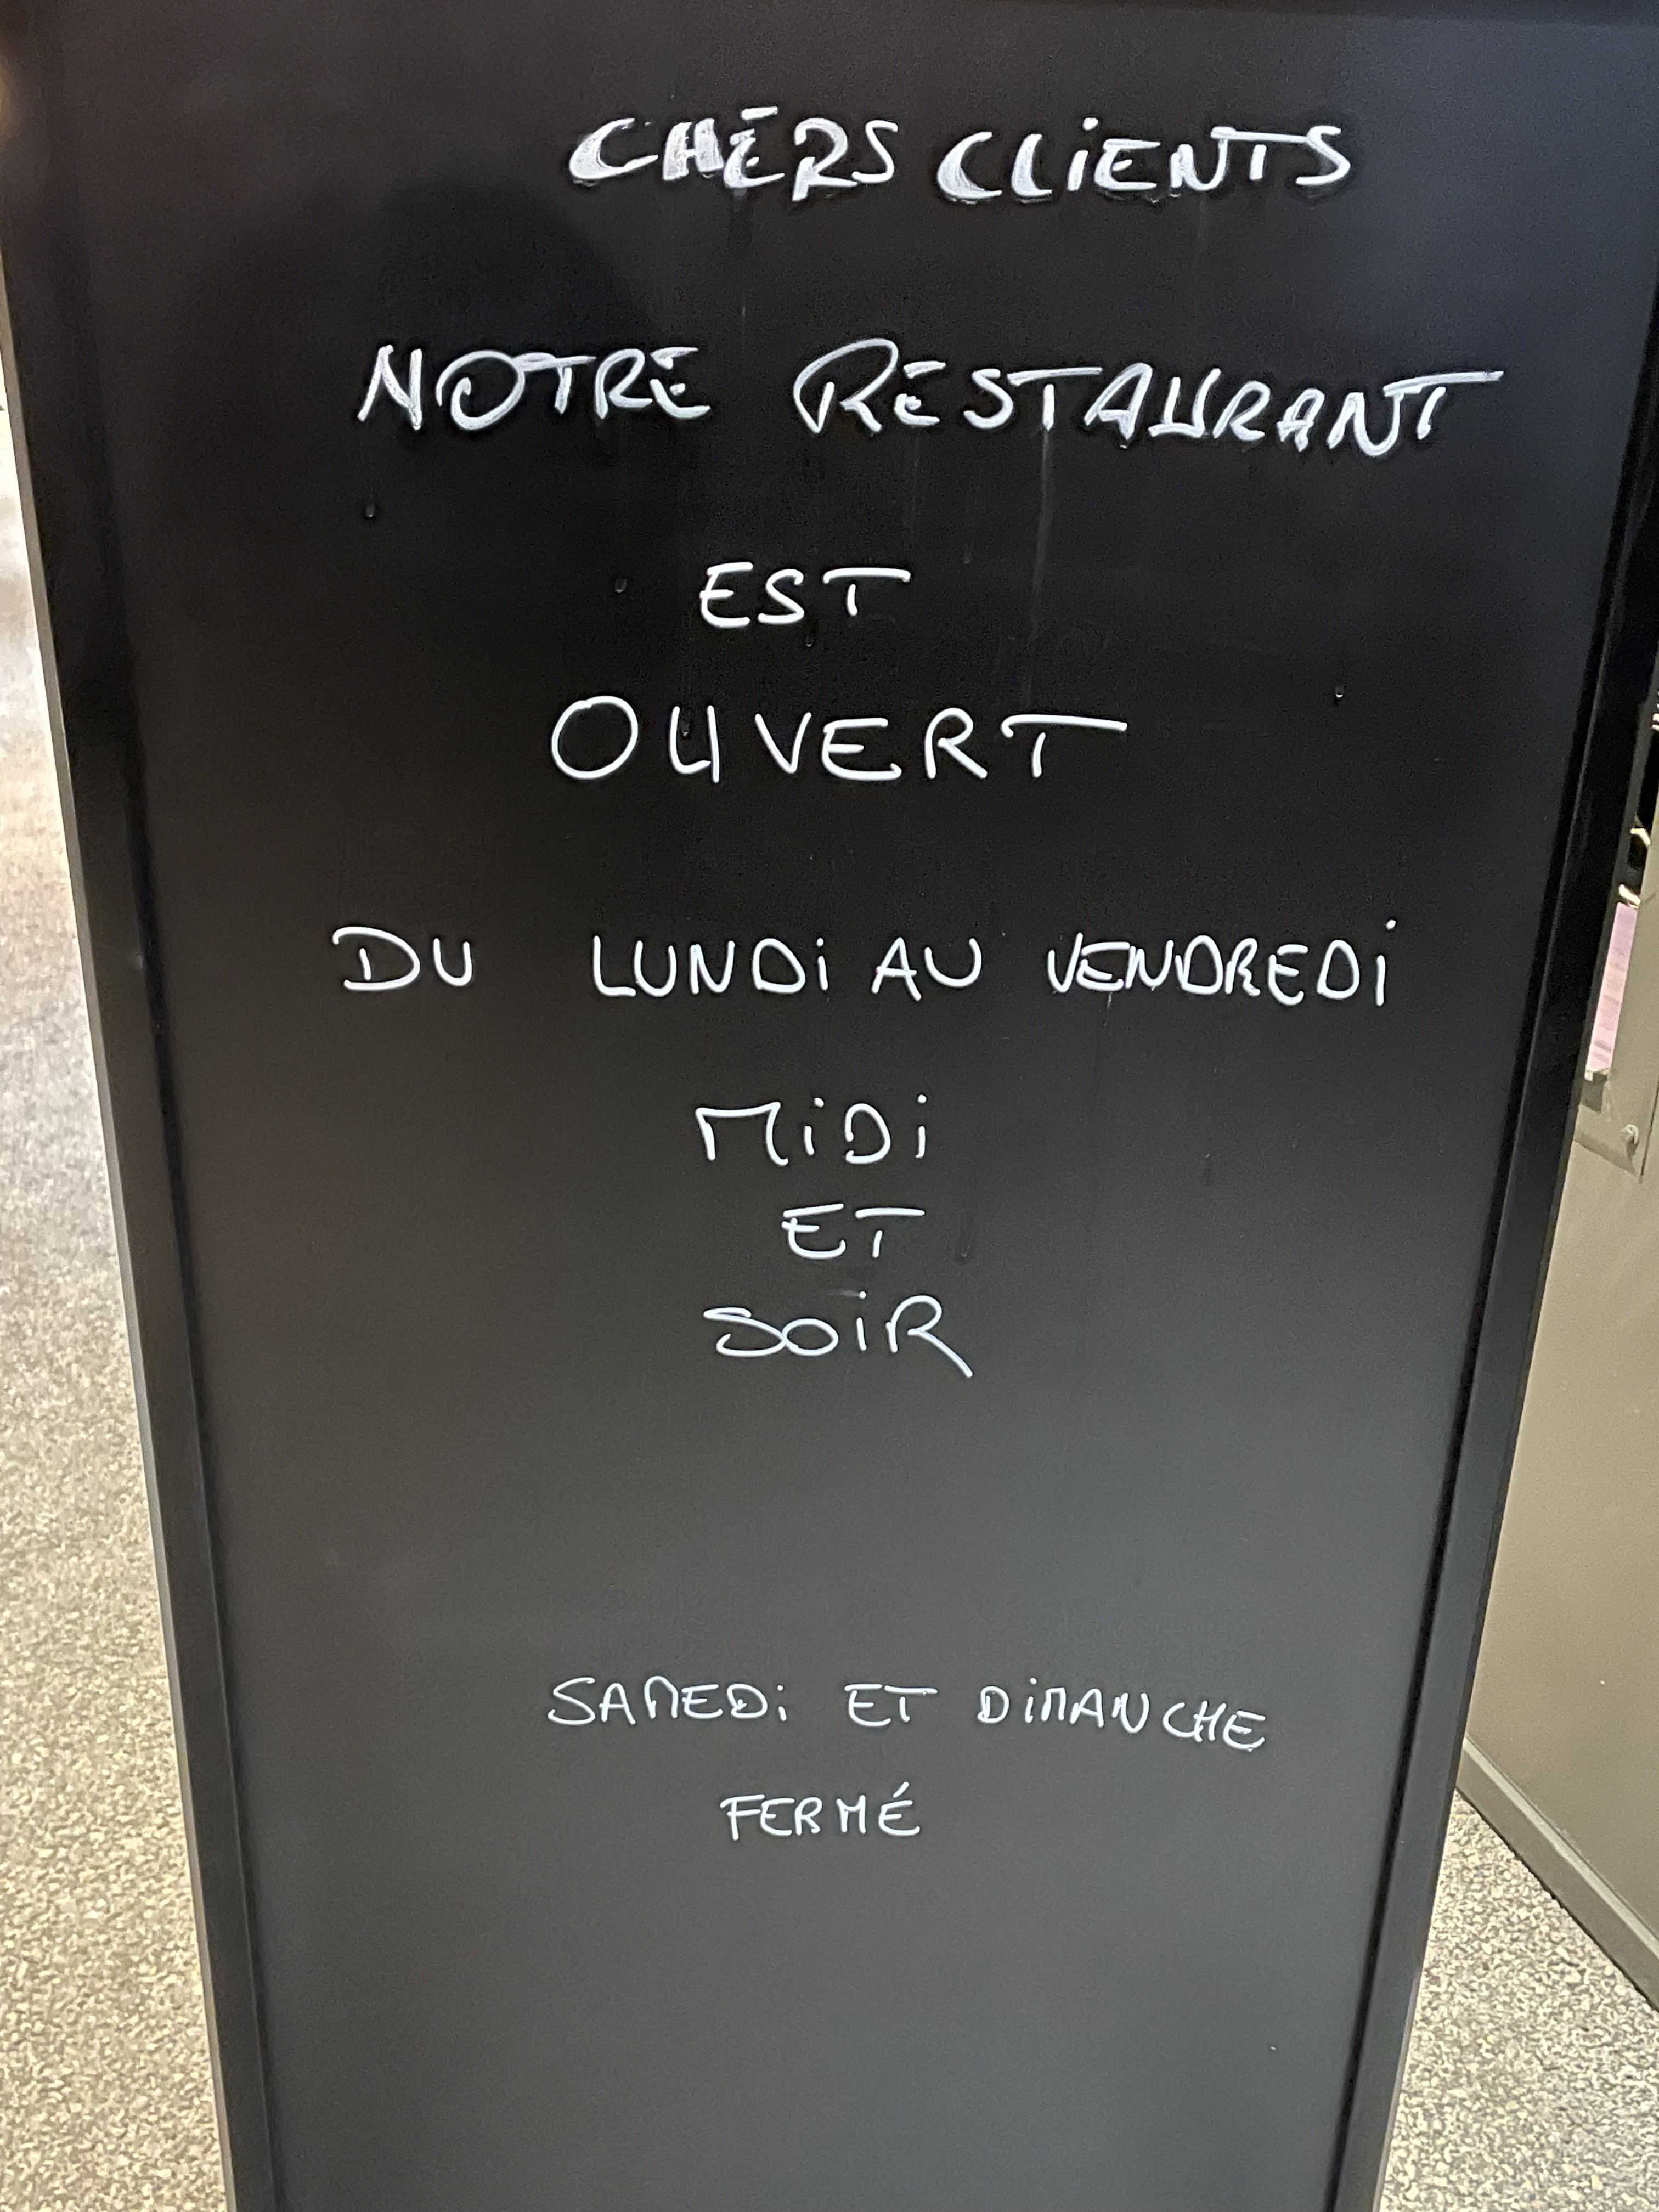 CHERS CLIENTS
NOTRE RESTAURANT
EST
OUVERT
DU LUNDi AU VENDREDi
MiDi
ET
SOiR
SAMEDi ET DiMANCHE
FERMÉ